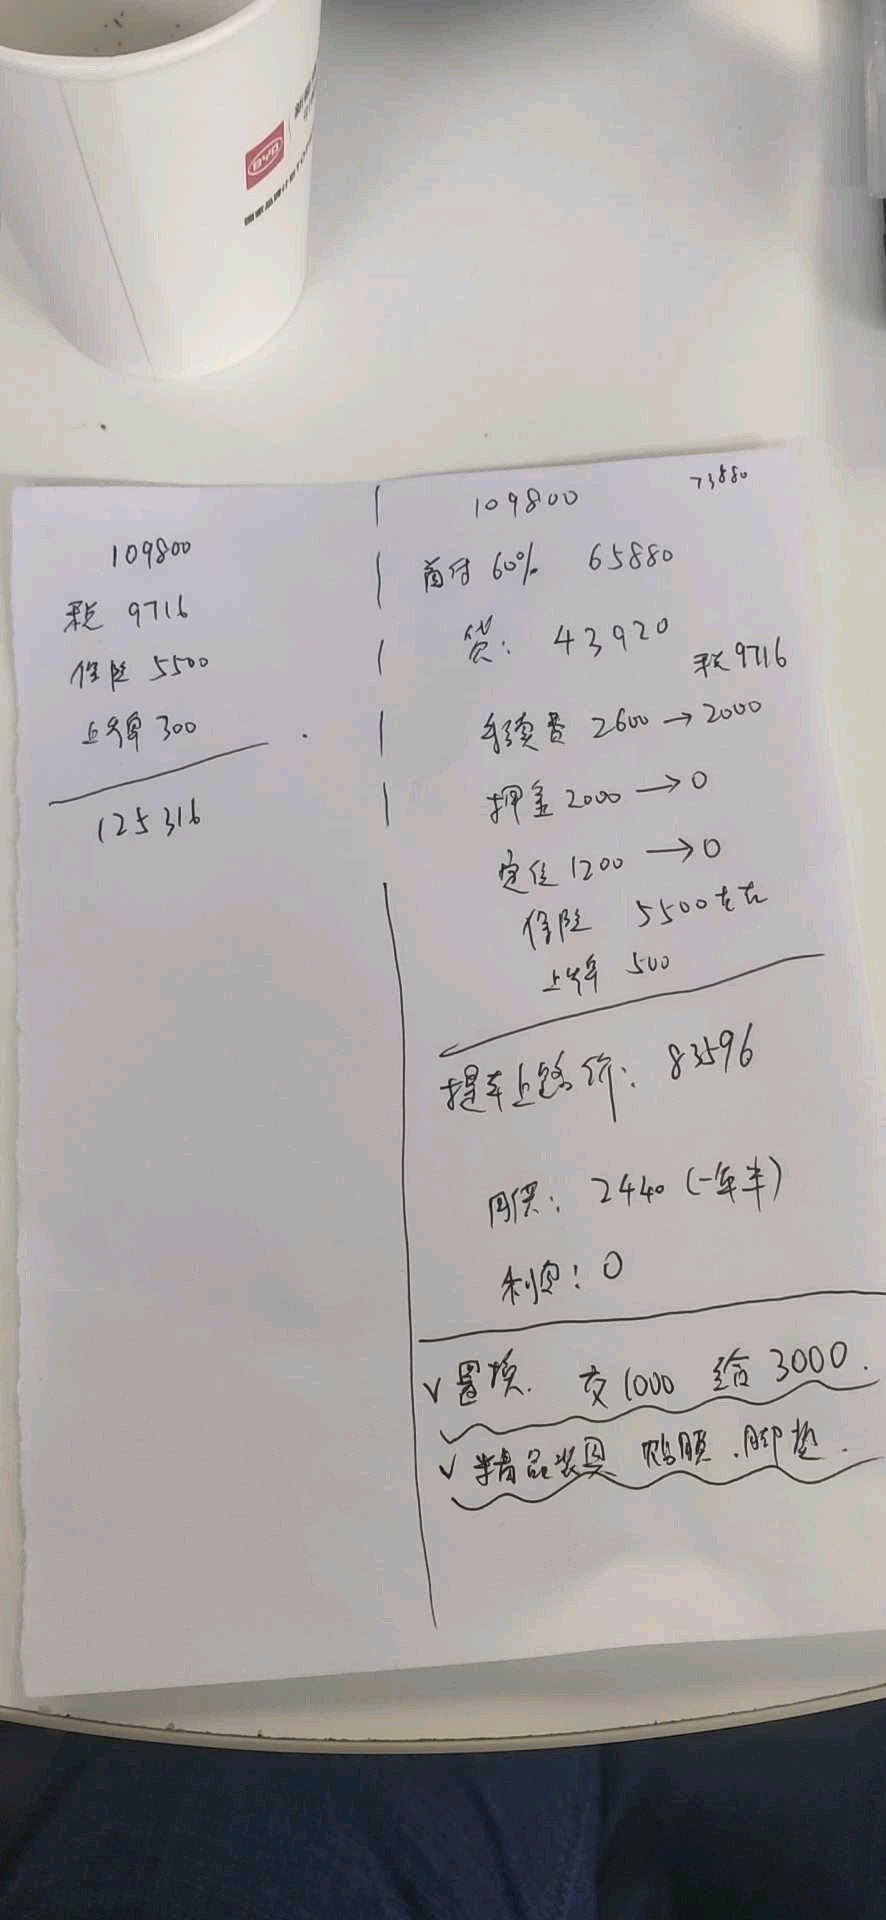 BYD
109800
税 9716
保险 5500
上牌 300
125316
73880
109800
首付 60% 65880
贷: 43920
税 9716
手续费 2600→2000
押金 2000→0
定位 1200→0
保险 5500左右
上牌 500
提车上路价: 83596
月供: 2440 (一年半)
利息: 0
√置换. 交1000 给3000.
√精品装具 贴膜.脚垫.